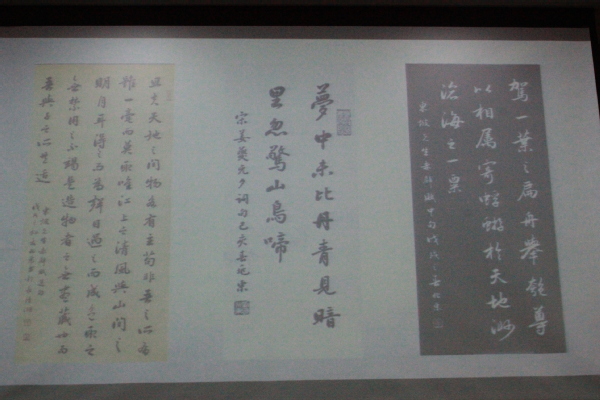 駕一葉之扁舟舉匏尊
以相屬寄蜉蝣於天地渺
滄海之一粟
東坡先生赤壁賦中句戊戌
夢中未比丹青見暗
里忽驚山鳥啼
宋姜夔元夕詞句己亥
且夫天地之間物各有主苟非吾之所有
雖一毫而莫取唯江上之清風與山間之
明月耳得之而為聲目遇之而成色取之
無禁用之不竭是造物者之無盡藏也而
吾與子之所共適